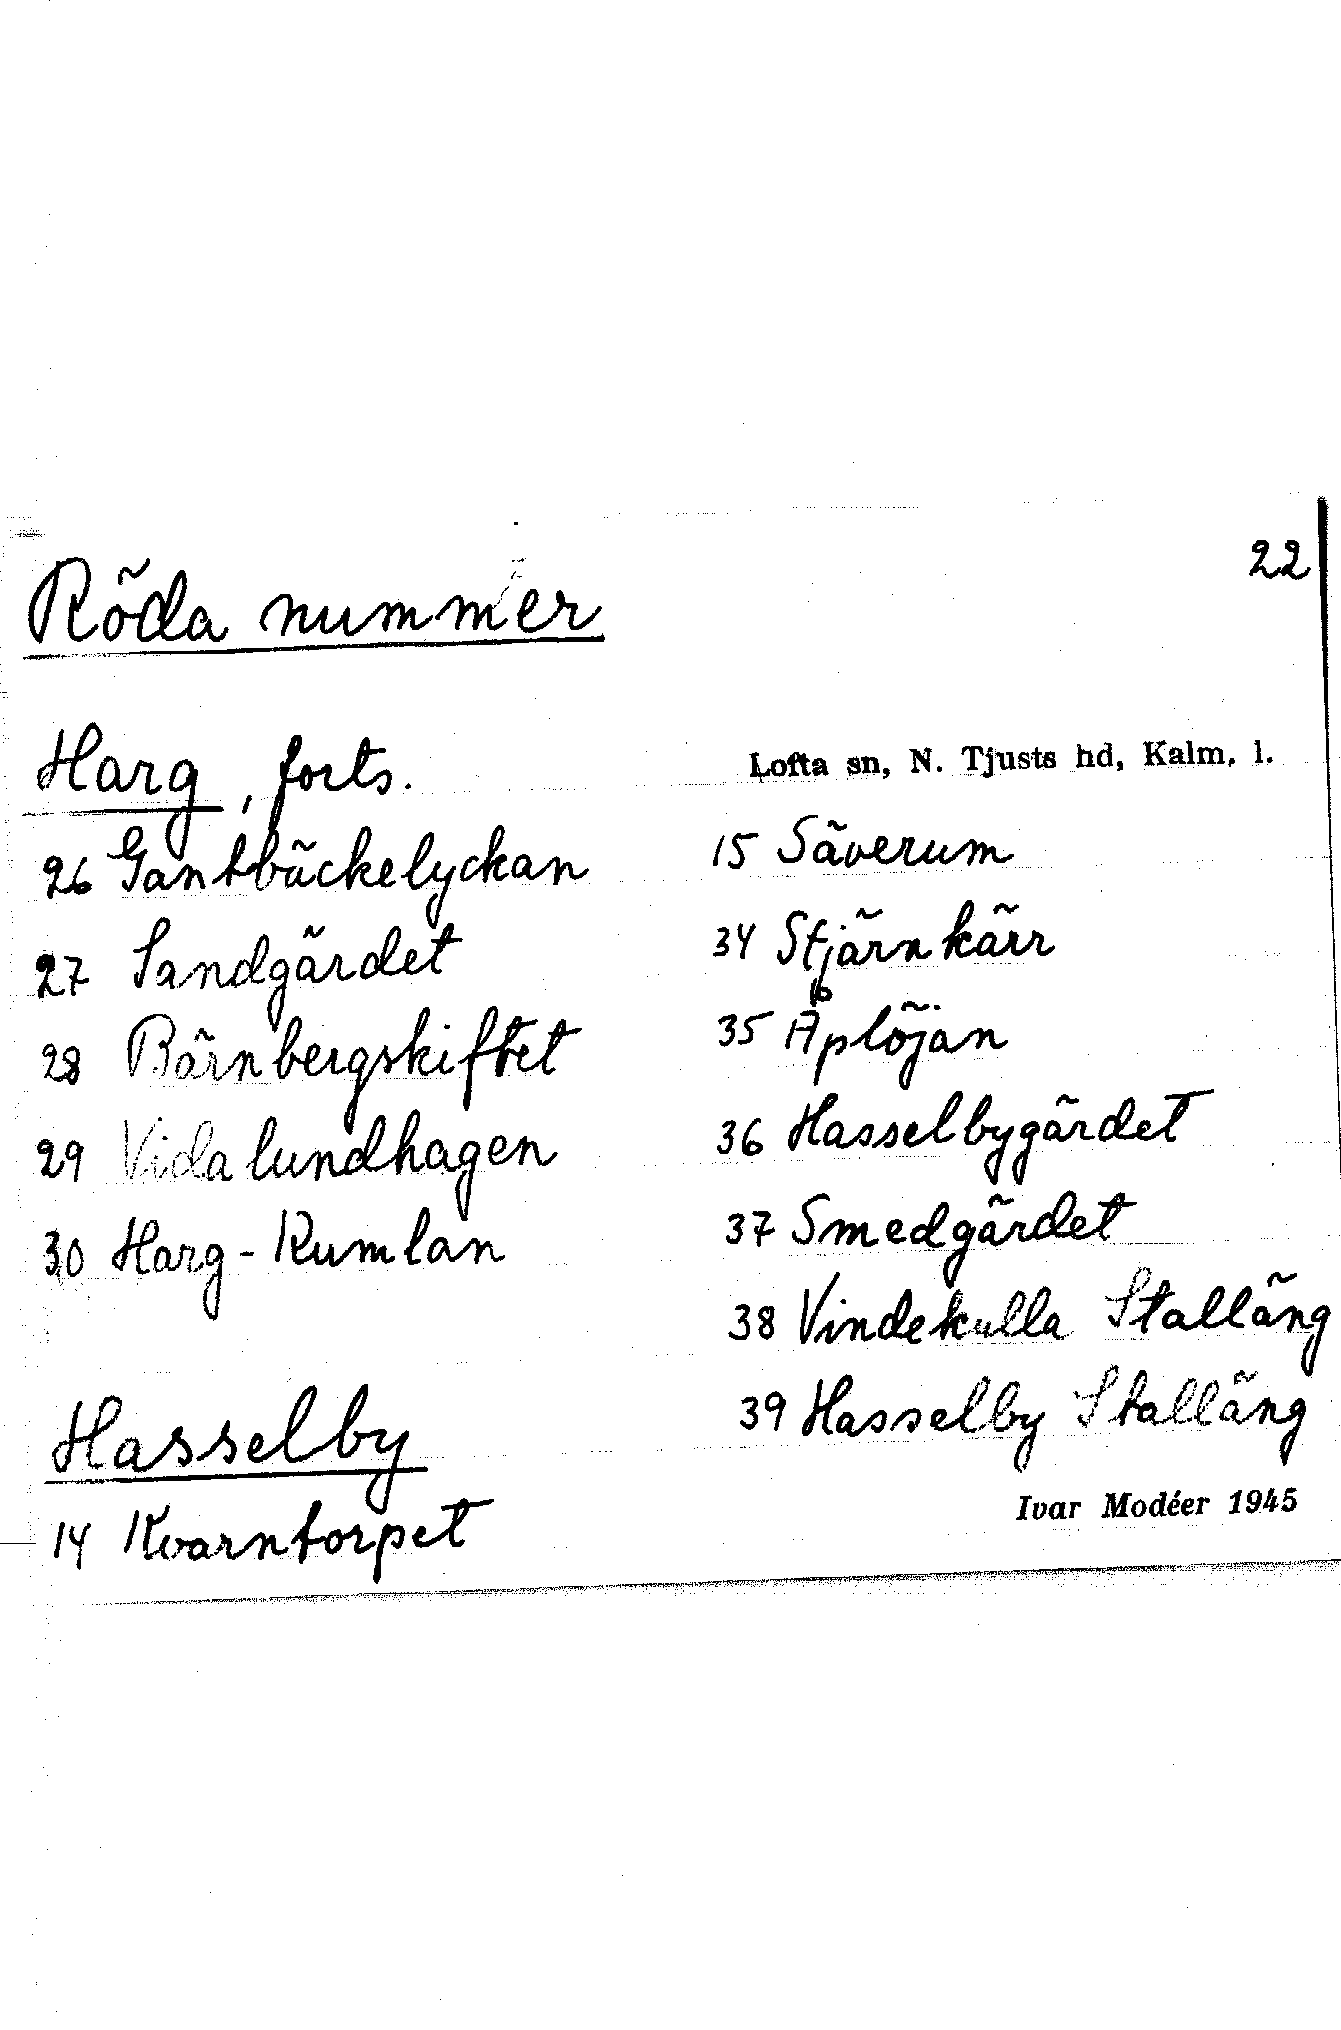 22
Röda nummer
Harg, forts.
26 Gantbäckelyckan
27 Sandgärdet
28 Bärnbergskiftet
29 Vidalundhagen
30 Harg-Rumlan
Hasselby
14 Kvarntorpet
Lofta sn, N. Tjusts hd, Kalm. l.
15 Säverum
34 Stjärnkärr
35 Äplöjan
36 Hasselbygärdet
37 Smedgärdet
38 Vindekulla Stalläng
39 Hasselby Stalläng
Ivar Modéer 1945